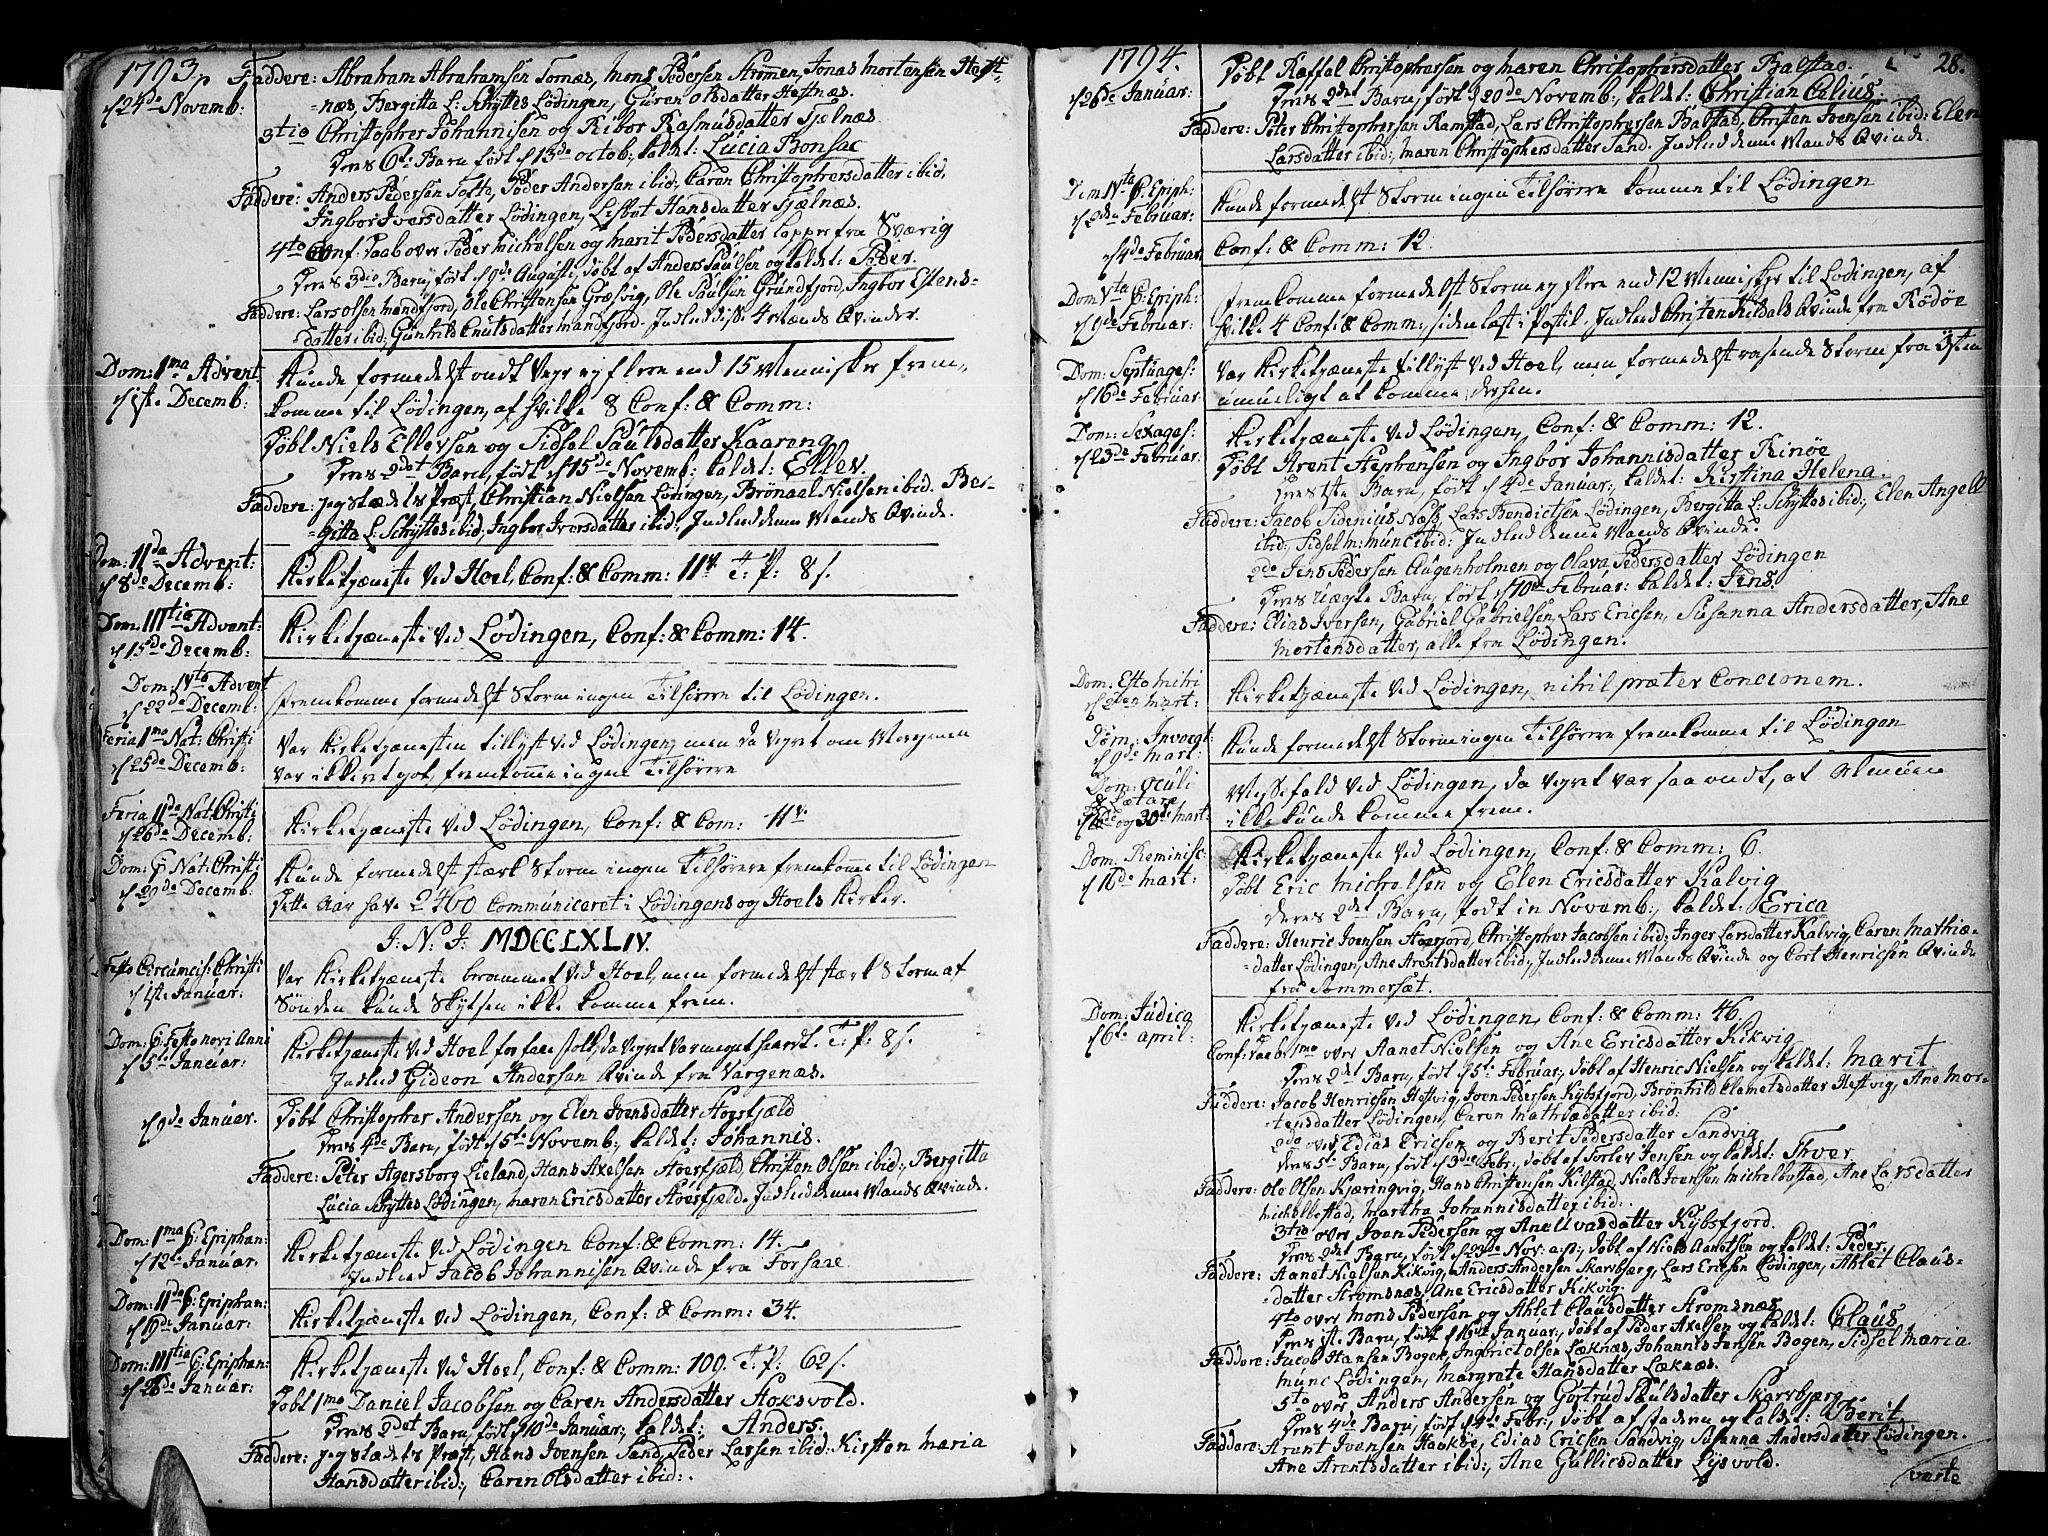 1793.
d 24de Novemb:
Faddere: Abraham Abrahamsen Tornæs, Mons Pedersen Strømen, Jonas Mortensen Hest-
næs, Bergitta L: Schyttes Lødingen, Guren Olsdatter Hestnæs.
3tio Christopher Johannisen og Ribor Rasmusdatter Tjelnæs
Deres 6te Barn født d 13de octob: kaldet: Lucia Bonsac
Faddere: Anders Pedersen Tofte, Peder Andersen ibid, Caren Christophersdatter ibid,
Ingbor Iversdatter Lødingen, Lisbet Hansdatter Tjelnæs.
4to Conf: Daab over Peder Michelsen og Marit Pedersdatter Lapper fra Sværig
Deres 3die Barn, født d 9de Augusti, døbt af Anders Paulsen og kaldet: Peder.
Faddere: Lars Olsen Mandfjord, Ole Christensen Græsvig, Ole Paulsen Grundfjord, Ingbor Estens-
datter ibid, Gunhild Cnutsdatter Mandfjord. Indled disse 4 Mænds Qvinder.
Dom: 1ma Advent
d 1ste Decemb:
Kunde formedelst ondt Vejr ej flere end 15 Mennisker frem-
komme til Lødingen, af hvilke 8 Conf: & Comm:
Døbt Niels Ellevsen og Sidsel Paulsdatter Kaareng
Deres 2det Barn, født d 15de Novemb: kaldet: Ellev.
Faddere: jeg stædets Præst, Christian Nielsen Lødingen, Brønael Nielsen ibid. Ber-
gitta L: Schyttes ibid, Ingbor Iversdatter ibid: Indled denne Mands Qvinde.
Dom: 11da Advent:
d 8de Decemb:
Kirketjæneste ved Hoel, Conf: & Comm: 11. T. P: 8 s.
Dom: IIItia Advent:
d 15de Decemb:
Kirketjæneste ved Lødingen, Conf: & Comm: 14.
Dom: IVto Advent
d 22de Decemb:
Fremkomme formedelst Storm ingen Tilhørere til Lødingen.
Feria 1ma Nat: Christi
d 25de Decemb:
Var Kirketjænesten tillyst ved Lødingen, men da Vejret om Morgenen
var ikke ret got, fremkomme ingen Tilhørere
Feria 11da Nat: Christi
d 26de Decemb:
Kirketjæneste ved Lødingen, Conf: & Com: 11.
Dom: P: Nat: Christi
d 29de Decemb:
Kunde formedelst stærk Storm ingen Tilhørere fremkomme til Lødingen
Dette Aar have 2460 Communiceret i Lødingens og Hoels Kirker.
J: N: J: MDCCLXLIV.
Festo Circumcis: Christi
d 1ste Januar:
Var Kirketjæneste berammet ved Hoel, men formedelst stærk Storm af
Sønden kunde Skydsen ikke komme frem.
Dom: P: Festo novi Anni
d 5te Januar:
Kirketjæneste ved Hoel for faae Folk, da Vejret var meget haardt. T. P: 8 s.
Indled Gideon Andersen Qvinde fra Vargenæs.
d 9de Januar.
Døbt Christopher Andersen og Elen Joensdatter Hoesfjæld
Deres 4de Barn, født d 5te Novemb: kaldet: Johannis.
Faddere: Peter Agersborg Lieland, Hans Axelsen Hoesfjæld, Christen Olsen ibid:, Bergitta
Lucia Schyttes Lødingen, Maren Ericsdatter Hoesfjæld. Indled denne Mands Qvinde.
Dom: 1ma P: Epiphan:
d 12te Januar.
Kirketjæneste ved Lødingen Conf: & Comm: 14.
Indled Jacob Johannisen Qvinde fra Forsaae
Dom: 11da P: Epiphan:
d 19de Januar:
Kirketjæneste ved Lødingen, Conf: & Comm: 34.
Dom: IIItia P: Epiphan:
d 26de Januar:
Kirketjæneste ved Hoel, Conf: & Comm: 100. T: P: 62 s.
Døbt 1mo Daniel Jacobsen og Caren Andersdatter Stoksvold.
Deres 2det Barn, født d 10de Januar: kaldet: Anders.
Faddere: jeg stædets Præst, Hans Joensen Sand, Peder Larsen ibid: Kirsten Maria
Hansdatter ibid:, Caren Olsdatter ibid:.
1794.
28.
d 26de Januar:
Døbt Raffal Christophersen og Maren Christophersdatter Balstad.
Deres 2det Barn, født d 20de Novemb:, kaldet: Christian Calius.
Faddere: Peter Christophersen Ramstad, Lars Christophersen Balstad, Christen Ivensen ibid: Elen
Larsdatter ibid:, Maren Christophersdatter Sand. Indled denne Mands Qvinde.
Dom: IVta P: Epiph:
d 2den Februar:
Kunde formedelst Storm ingen Tilhørere komme til Lødingen
d 4de Februar
Conf: & Comm: 12.
Dom Vta P: Epiph:
d 9de Februar:
Fremkomme formedelst Storm ej flere end 12 Mennisker til Lødingen, af
hvilke 4 Conf: & Comm:, siden læst i Postil. Indled Christen Kildals Qvinde fra Rødøe
Dom: Septuages:
d 16de Februar:
Var Kirketjæneste tillyst ved Hoel, men formedelst rasende Storm fra Østen
umueligt at komme dersen.
Dom: Sexages:
d 23de Februar:
Kirketjæneste ved Lødingen, Conf: & Comm: 12.
Døbt Arent Stephensen og Ingbor Johannisdatter Rinøe
Deres 1ste Barn, født d 4de Januar:, kaldet: Kistina Helena.
Faddere: Jacob Sidenius Næss, Lars Bendictsen Lødingen, Bergitta L: Schyttes ibid:, Elen Angell
ibid: Sidsel M: Munc ibid: Indled denne Mands Qvinde.
2do Jens Pedersen Augenholmen og Olava Pedersdatter Lødingen
Deres Uægte Barn, født d 10de Februar: kaldet: Jens.
Faddere: Elias Iversen, Gabriel Gabrielsen, Lars Ericsen, Susanna Andersdatter, Ane
Mortensdatter, alle fra Lødingen.
Dom: Esto Mihi
d 2den Mart:
Kirketjæneste ved Lødingen, nihil præter Concionem.
Dom: Invocqt
d 9de Mart:
Kunde formedelst Storm ingen Tilhørere fremkomme til Lødingen
Dom: Oculi
& Lætare
og 30de Mart:
Messefald ved Lødingen, da Vejret var saa ondt, at Almuen
ikke kunde komme frem.
Dom: Reminisc:
d 16de Mart:
Kirketjæneste ved Lødingen, Conf: & Comm: 6.
Døbt Eric Michelsen og Elen Ericsdatter Kalvig
Deres 2det Barn, født in Novemb:, kaldet: Erica
Faddere: Henric Joensen Hoefjord, Christopher Jacobsen ibid: Inger Larsdatter Kalvig, Caren Mathiæ-
datter Lødingen, Ane Arentsdatter ibid: Indled denne Mands Qvinde og Cort Henricsen Qvinde
fra Sommersæt.
Dom: Judica
d 6te April:
Kirketjæneste ved Lødingen, Conf: & Comm: 46.
Conf: Daab 1mo over Aanet Nielsen og Ane Ericsdatter Kikvig
Deres 2det Barn, født d 5te Februar:, døbt af Henric Nielsen og kaldet: Marit
Faddere: Jacob Henricsen Hestvig, Joen Pedersen Kybsfjord, Brønhild Clemetsdatter Hestvig, Ane Mor-
tensdatter Lødingen, Caren Mathiædatter ibid:
2do over Edias Ericsen og Berit Pedersdatter Sandvig
Deres 5te Barn, født d 3de Febr:, døbt af Torlev Jensen og kaldet: Thver
Faddere: Ole Olsen Kjæringvig, Hans Christensen Kilstad, Niels Joensen Michelbostad, Ane Larsdatter
Michelbostad, Martha Johannisdatter ibid:
3tio over Joen Pedersen og Ane Ilvasdatter Kybsfjord.
Deres 2det Barn, født d 23de Nov: a:p:, døbt af Niels Aanetsen og kaldet: Peder.
Faddere: Aanet Nielsen Kikvig, Anders Andersen Skarvbjerg, Lars Ericsen Lødingen, Ahlet Claus-
datter Stromsnæs, Ane Ericsdatter Kikvig.
4to over Mons Pedersen og Ahlet Clausdatter Stromsnæs
Deres 1ste Barn, født d 16de Januar:, døbt af Peder Axelsen og kaldet: Claus
Faddere: Jacob Hansen Bogen, Ingbrict Olsen Læknæs, Johannis Jensen Bogen, Sidsel Maria
Munc Lødingen, Margrete Hansdatter Læknæs.
5to over Anders Andersen og Gortrud Paulsdatter Skarvbjerg
Deres 4de Barn, født d 4de Febr:, døbt af Faderen og kaldet: Berit.
Faddere: Arent Ivensen Haukøe, Edias Ericsen Sandvig, Susanna Andersdatter Lødingen.
Ane Arentsdatter ibid:, Ane Gullicsdatter Lysvold.
verte